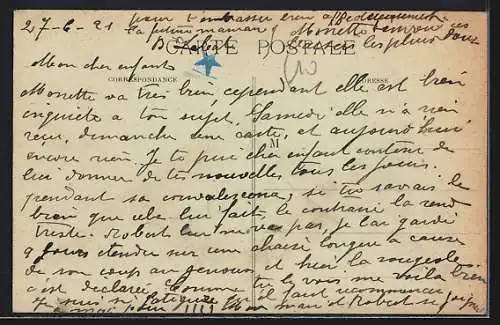 27-6-21 pour t'embrasser bien affectueusement
la future maman Monette t'envoie ses
B baisers les plus doux
CARTE POSTALE
Mon cher enfant
CORRESPONDANCE ADRESSE
Monette va très bien, cependant elle est bien
inquiète à ton sujet. Samedi elle n'a rien
reçu, dimanche une carte, et aujourd'hui
encore rien. Je te prie cher enfant continue de M
lui donner de tes nouvelles tous les jours
pendant sa convalescence, si tu savais le
bien que cela lui fait, le contraire la rend
triste. Robert lui pas, je l'ai gardé
9 jours étendu sur une chaise longue à cause
de son coup au genou et hier la rougeole
s'est déclarée. Comme tu le vois me voilà bien
je suis si fatiguée il faut recommencer
moi pour !!!! man et Robert se joignent
10